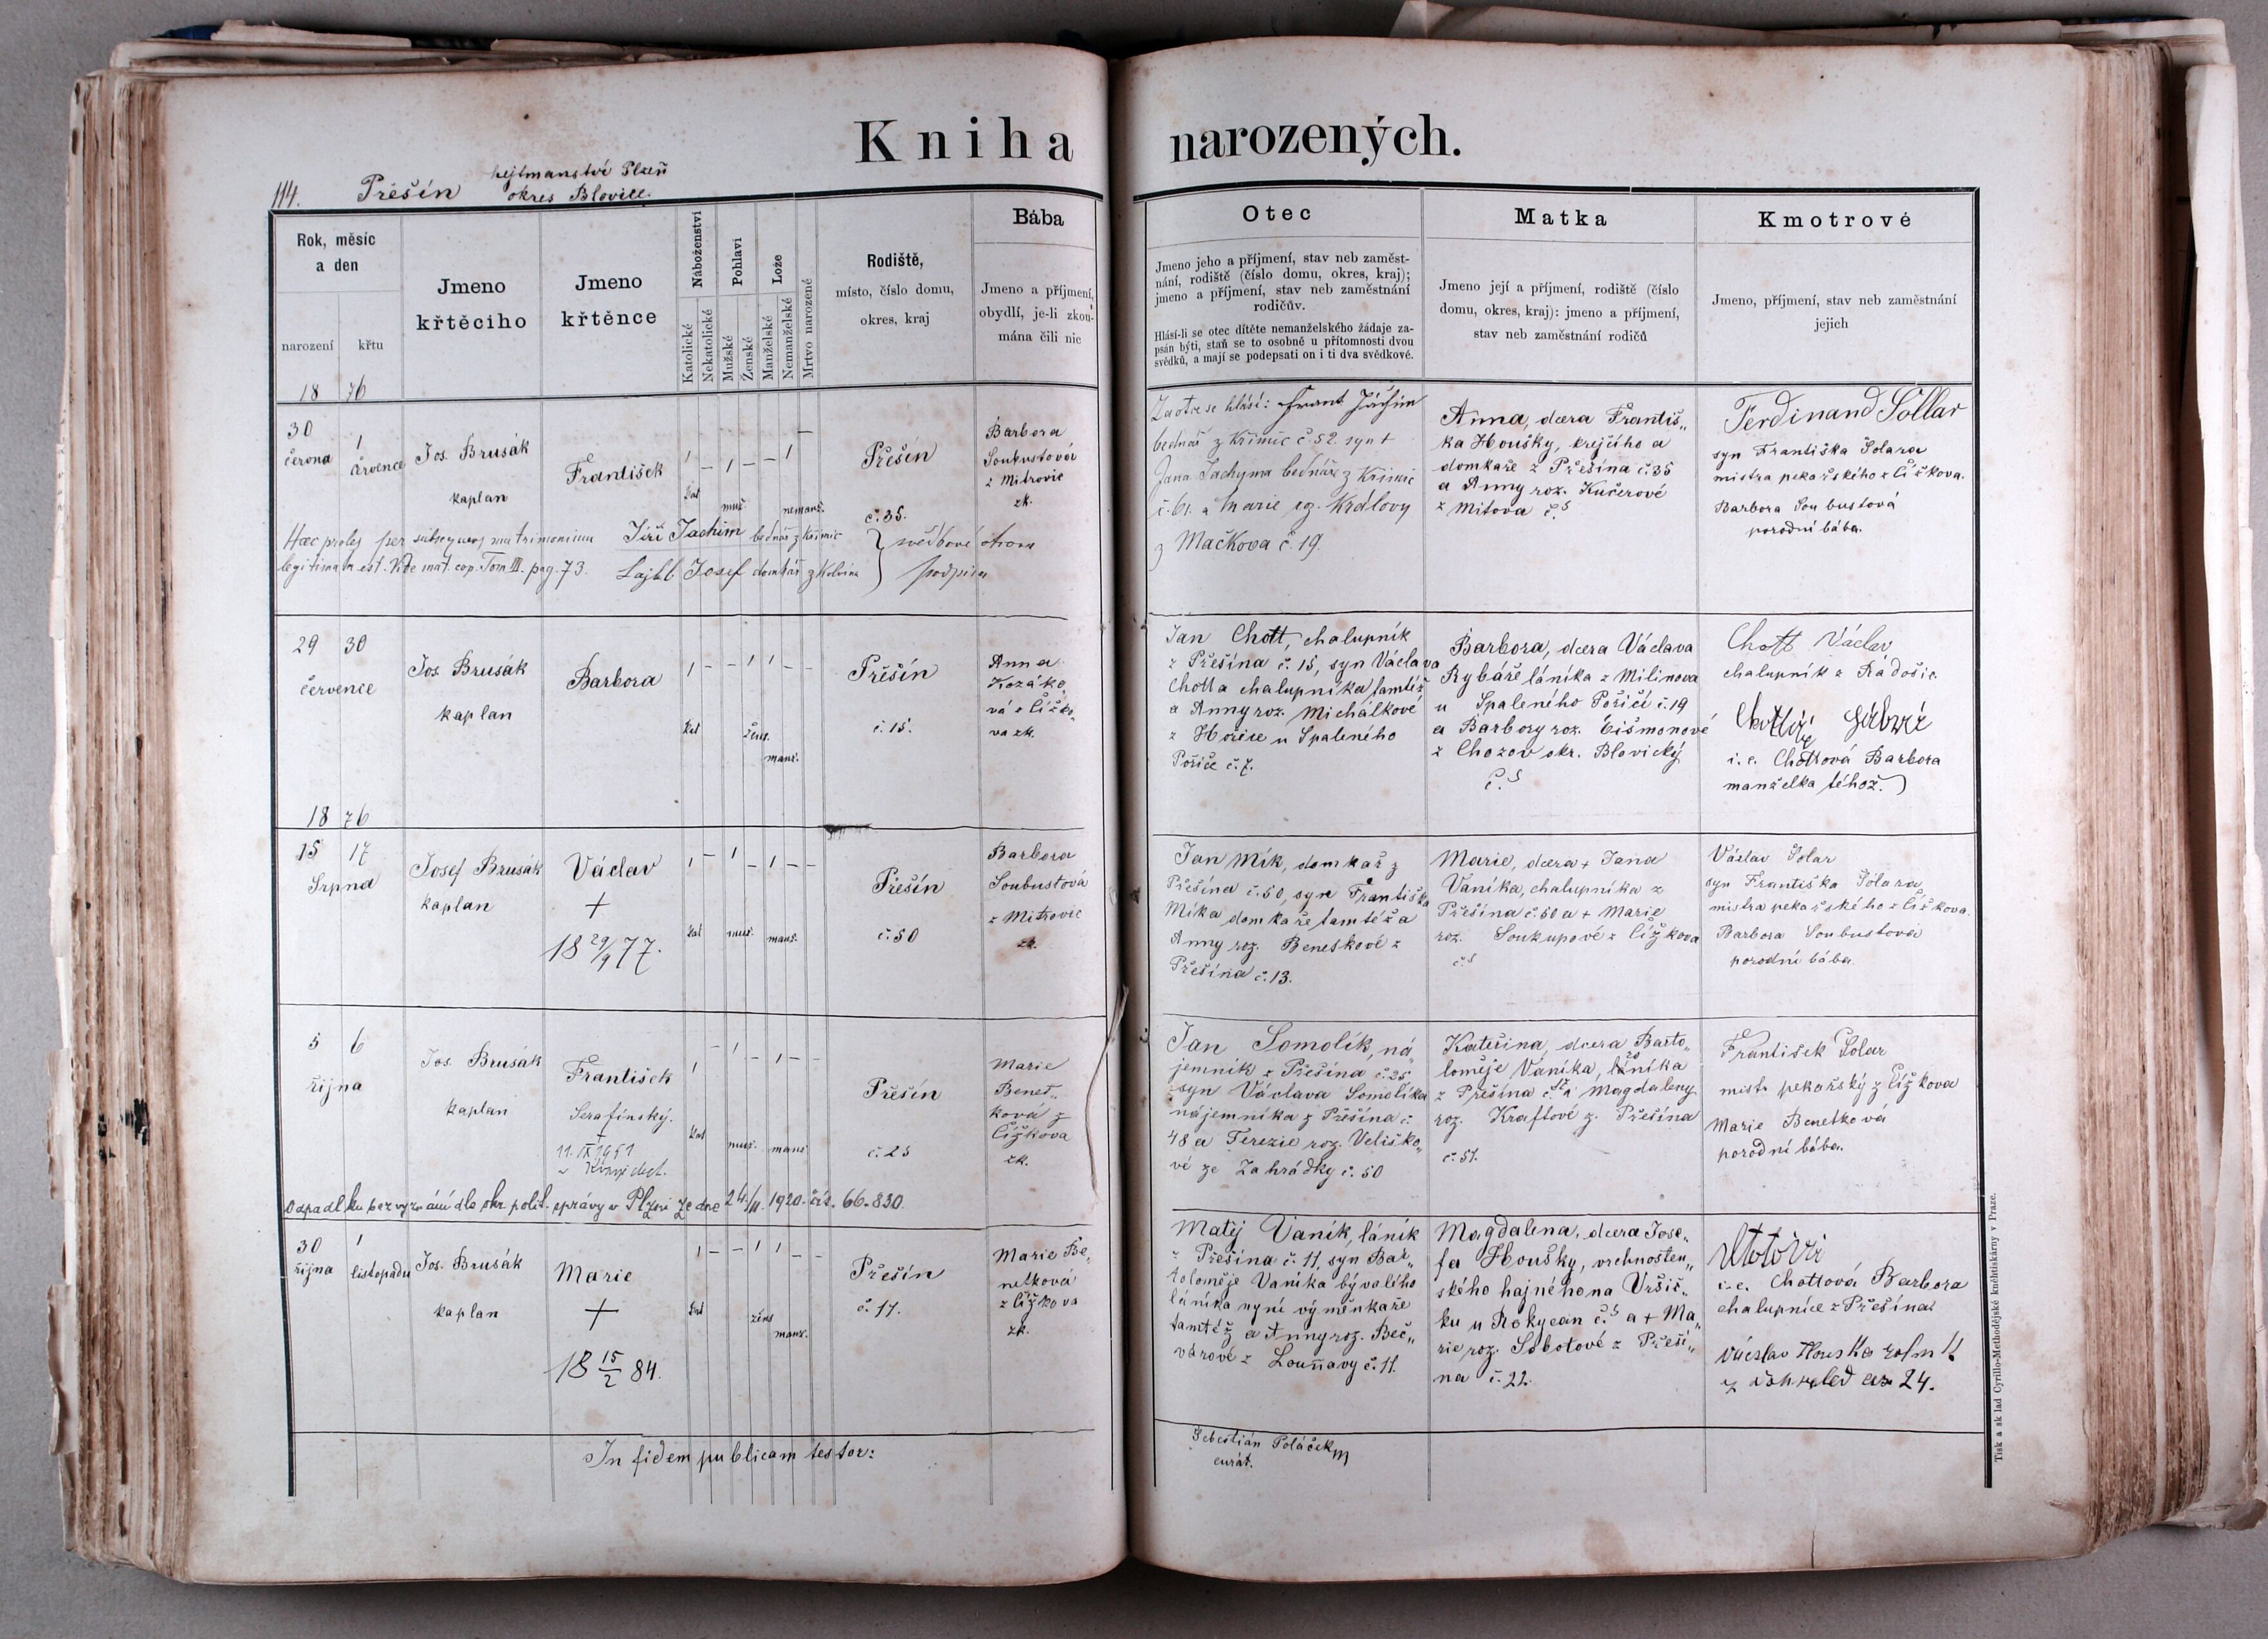 Kniha narozených.
114. Přešín
hejtmanství Plzeň
okres Blovice.
Rok, měsíc
a den
narození
křtu
Jmeno
křtěcího
Jmeno
křtěnce
Náboženství
Katolické
Nekatolické
Pohlaví
Mužské
Ženské
Lože
Manželské
Nemanželské
Mrtvo narozené
Rodiště,
místo, číslo domu,
okres, kraj
Bába
Jmeno a příjmení,
obydlí, je-li zkou-
mána čili nic
Otec
Jmeno jeho a příjmení, stav neb zaměst-
nání, rodiště (číslo domu, okres, kraj);
jmeno a příjmení, stav neb zaměstnání
rodičův.
Hlásí-li se otec dítěte nemanželského žádaje za-
psán býti, staň se to osobně u přítomnosti dvou
svědků, a mají se podepsati on i ti dva svědkové.
Matka
Jmeno její a příjmení, rodiště (číslo
domu, okres, kraj): jmeno a příjmení,
stav neb zaměstnání rodičů
Kmotrové
Jmeno, příjmení, stav neb zaměstnání
jejich
18 76
30
června
1
července
Jos. Brusák
kaplan
František
kat
muž.
nemanž.
Přešín
č. 35.
Barbora
Soubustová
z Mitrovic
zk.
Haec proles per subsequens matrimonium
legitimata est. Vide mat. cop. Tom III. pag. 73.
Jiří Jachim bednář z Křimic
Lajbl Josef domkář
svědkové
podpisu
Za otce se hlásí: Frant Jáchim
bednář z Křimic č. 52. syn +
Jana Jachyma bednáře z Křimic
č. 61. a Marie Královy
z Mačkova č. 19.
Anna, dcera Františ„
ka Houšky, krejčího a
domkaře z Přešína č. 35
a Anny roz. Kučerové
z Mítova č. 5
Ferdinand Sollar
syn Františka Solara
mistra pekařského z Čížkova.
Barbora Soubustová
porodní bába.
29 30
července
Jos. Brusák
kaplan
Barbora
kat
žens.
manž.
Přešín
č. 15.
Anna
Kozáko„
vá z Čížko„
va zk.
Jan Chott, chalupník
z Přešína č. 15, syn Václava
Chotta chalupníka tamtéž
a Anny roz. Michálkové
z Hořice u Spaleného
Poříče č. 7.
Barbora, dcera Václava
Rybáře láníka z Milinova
u Spaleného Poříčí č. 19
a Barbory roz. Čišmonové
z Chozov okr. Blovický
č. 5
Chott Václav
chalupník z Radošic
i. e. Chottová Barbora
manželka téhož.)
18 76
15 17
Srpna
Josef Brusák
kaplan
Václav
+
18 29/9 77.
kat
muž.
manž.
Přešín
č. 50
Barbora
Soubustová
z Mitrovic
zk.
Jan Mík, domkař z
Přešína č. 50, syn Františka
Míka domkaře tamtéž a
Anny roz. Beneskové z
Přešína č. 13.
Marie, dcera + Jana
Vaníka, chalupníka z
Přešína č. 50 a + Marie
roz. Soukupové z Čížkova
č. 5
Václav Solar
syn Františka Solara
mistra pekařského z Čížkova.
Barbora Soubustová
porodní bába.
5 6
října
Jos. Brusák
kaplan
František
Serafinský.
+
11. IX 1951
kat
muž.
manž.
Přešín
č. 25
Marie
Benet„
ková z
Čížkova
zk.
Odpadl ku bezvyznání dle okr. polit. správy v Plzni ze dne 24/11. 1920. čís. 66.830.
Jan Somolík, ná„
jemník z Přešína č. 25
syn Václava Somolíka
nájemníka z Přešína č.
48 a Terezie roz. Veliško„
vé ze Zahrádky č. 50
Kateřina, dcera Barto„
loměje Vaníka, láníka
z Přešína a Magdaleny
roz. Kraftové z. Přešína
č. 51.
František Solar
mistr pekařský z Čížkova
Marie Benetková
porodní bába.
30
října
1
listopadu
Jos. Brusák
kaplan
Marie
+
18 15/2 84.
kat
žens
manž.
Přešín
č. 11.
Marie Be„
netková
z Čížkova
zk.
Matěj Vaník, láník
z Přešína č. 11, syn Bar„
toloměje Vaníka bývalého
láníka nyní výměnkaře
tamtéž a Anny roz. Beč„
várové z Louňavy č. 11.
Magdalena, dcera Jose„
fa Houšky, vrchnosten„
ského hajného na Vršíč„
ku u Rokycan č. 5 a + Ma„
rie roz. Sobotové z Přeší„
na č. 22.
i. e. Chottová Barbora
chalupnice z Přešína
Václav Houska
24.
In fidem publicam testor:
Sebestián Poláček
curát.
Tisk a sklad Cyrillo-Methodějské kněhtiskárny v Praze.